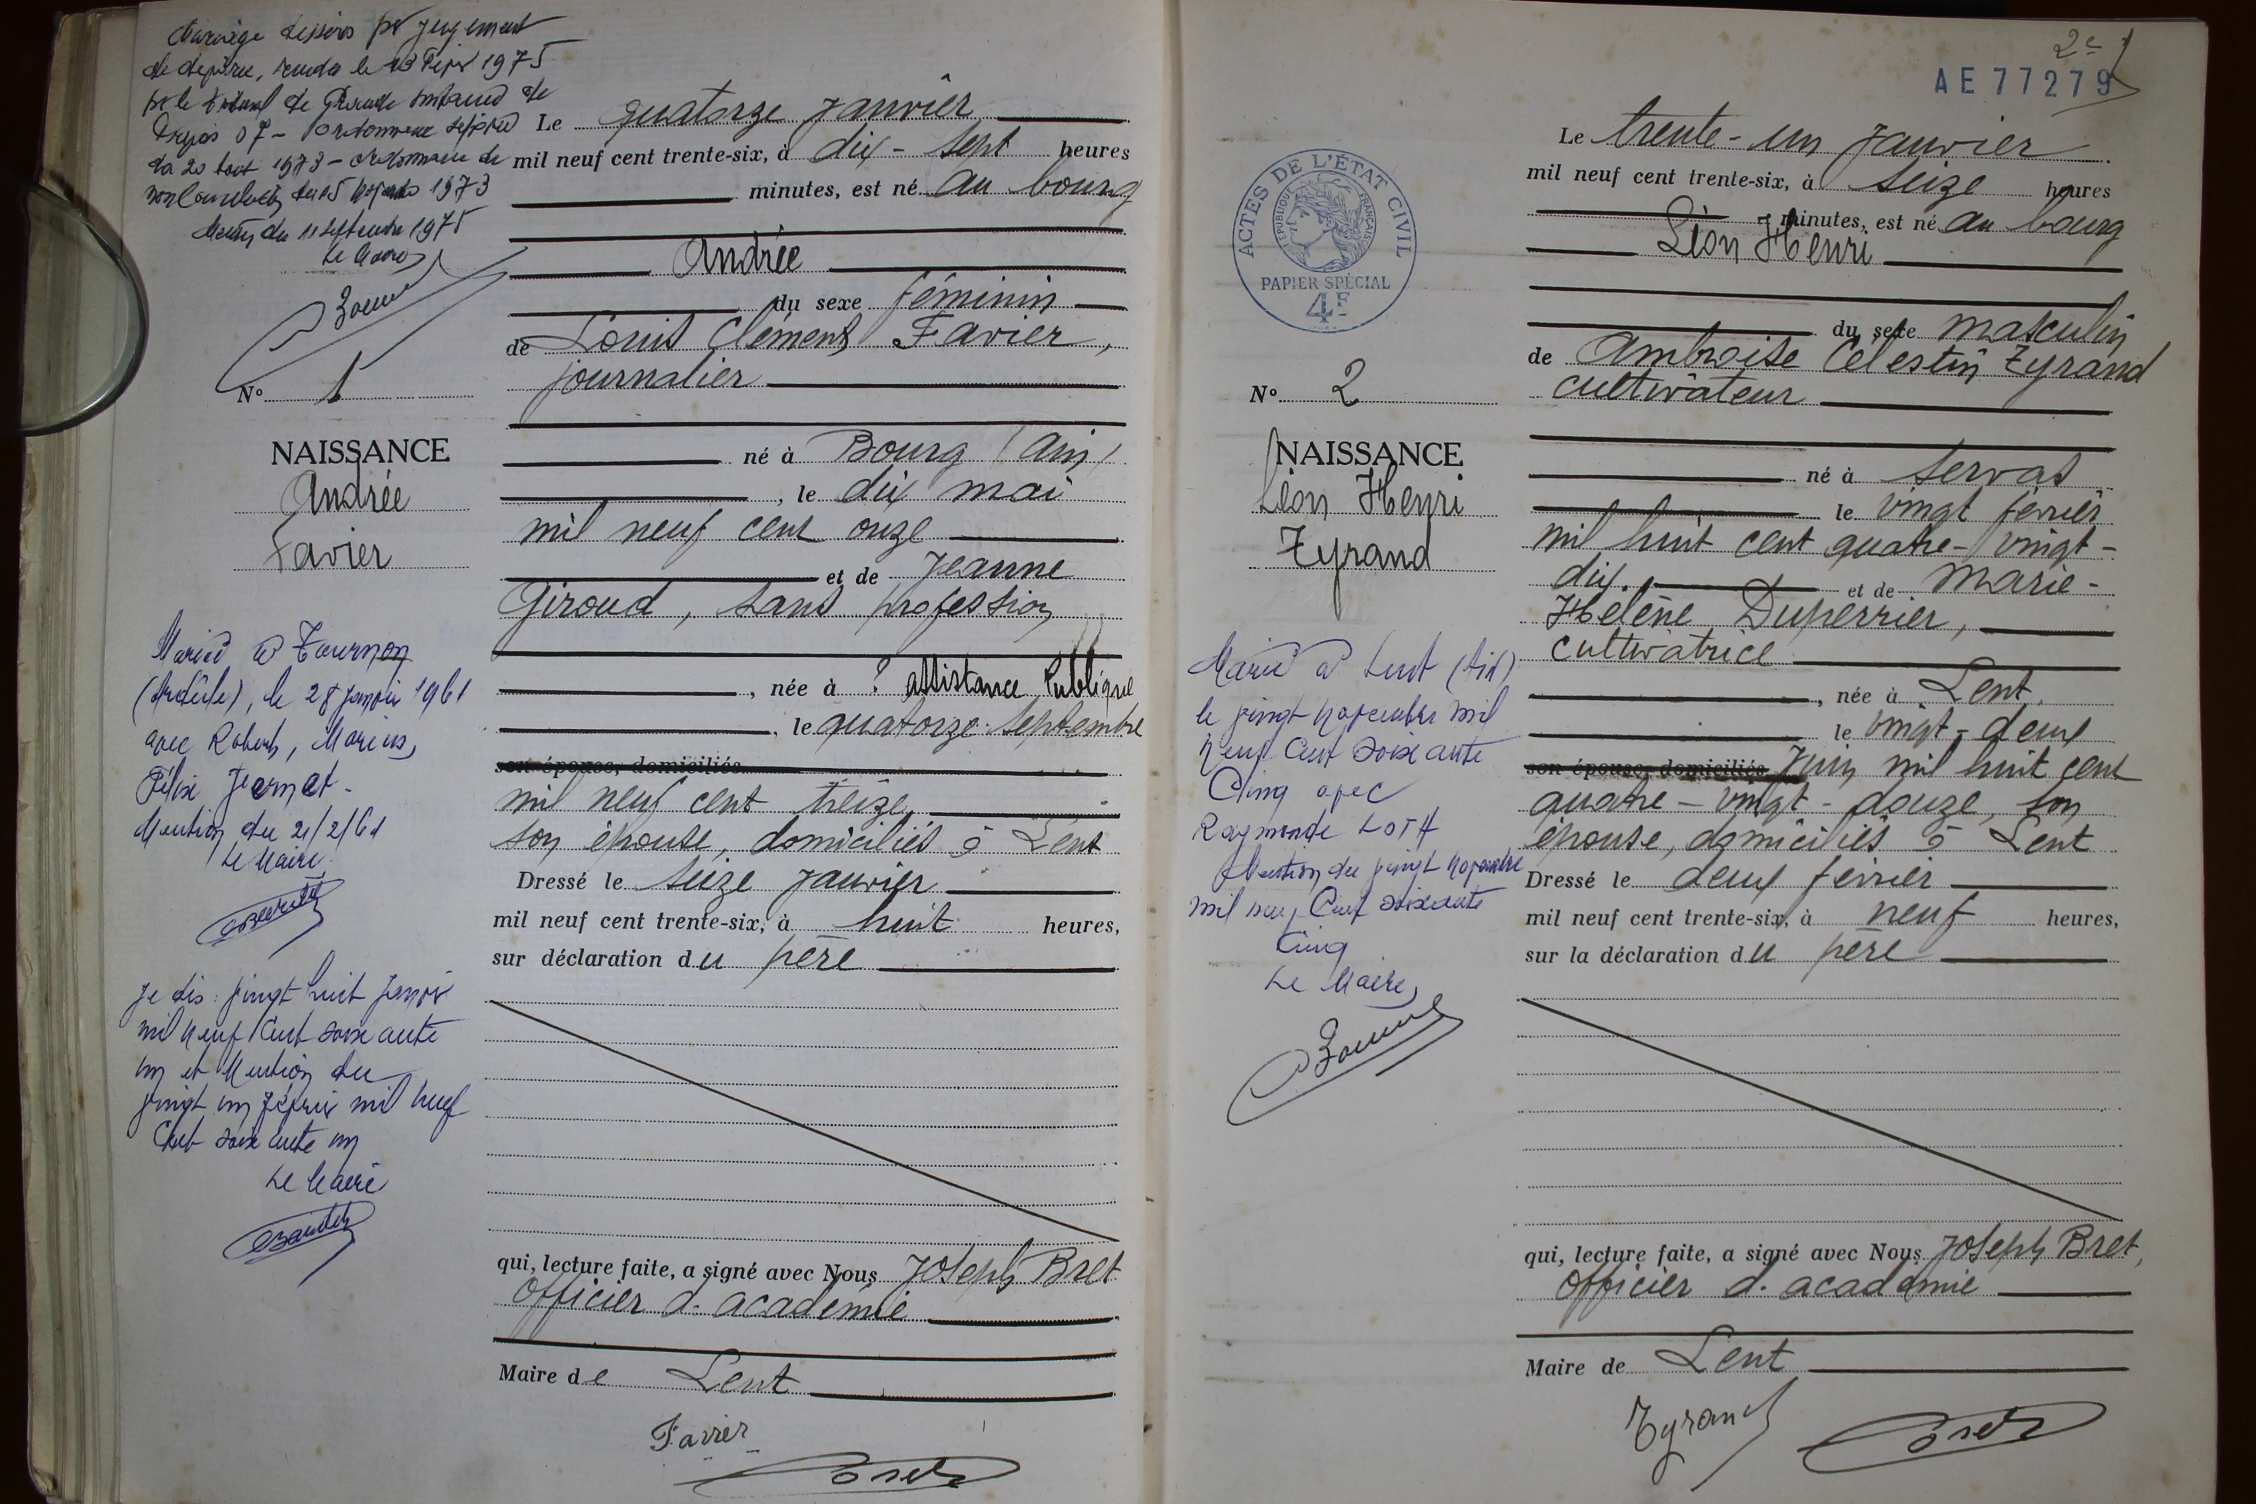 Mariage dissous par jugement
de divorce, rendu le 13 Février 1975
par le tribunal de Grande instance de
Privas 07 - Ordonnance
du 20 Aout 1973 - Ordonnance de
non Conciliation du 15 Novembre 1973
Mention du 11 septembre 1975
Le Maire
Nº 1
NAISSANCE
Andrée
Favier
Mariée à Tournon
(Ardèche), le 28 Janvier 1961
avec Robert, Marius,
Félix
Mention du 21/2/61
Le Maire
Je dis : vingt huit Janvier
mil neuf Cent soixante
un et Mention du
vingt un Février mil neuf
Cent soixante un
Le Maire
Le quatorze Janvier
mil neuf cent trente-six, à dix-sept heures
minutes, est né au bourg
Andrée
du sexe féminin
de Louis Clément Favier,
journalier
né à Bourg (Ain)
, le dix mai
mil neuf cent onze
et de Jeanne
Giroud, sans profession
, née à ? Assistance Publique
, le quatorze septembre
son épouse, domiciliés
mil neuf cent treize,
son épouse, domiciliés à Lent
Dressé le seize Janvier
mil neuf cent trente-six, à huit heures,
sur déclaration du père
qui, lecture faite, a signé avec Nous Joseph Bret
Officier d. académie
Maire de Lent
Favier
Bret
2e
AE 77279
ACTES DE L'ÉTAT CIVIL
RÉPUBLIQUE FRANÇAISE
PAPIER SPÉCIAL
4F
Nº 2
NAISSANCE
Léon Henri
Tyrand
Marié à Lent (Ain)
le vingt novembre mil
neuf Cent soixante
Cinq avec
Raymonde LOTH
Mention du vingt novembre
mil neuf Cent soixante
Cinq
Le Maire
Le trente-un Janvier
mil neuf cent trente-six, à seize heures
minutes, est né au bourg
Léon Henri
du sexe masculin
de Ambroise Célestin Tyrand
cultivateur
né à Servas
le vingt février
mil huit cent quatre-vingt-
dix. et de Marie-
Hélène Duperrier,
cultivatrice
, née à Lent
le vingt-deux
son épouse, domiciliés Juin mil huit cent
quatre-vingt-douze, son
épouse, domiciliés à Lent
Dressé le deux février
mil neuf cent trente-six, à neuf heures,
sur la déclaration du père
qui, lecture faite, a signé avec Nous Joseph Bret,
Officier d. académie
Maire de Lent
Tyrand
Bret